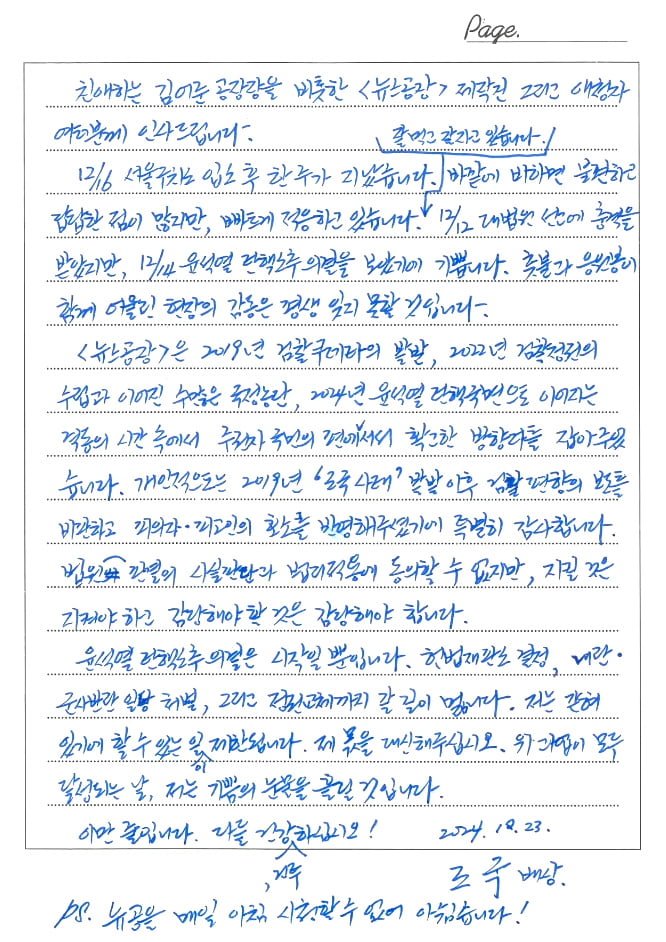 Page.
친애하는 김어준 공장장을 비롯한 <뉴스공장> 제작진 그리고 애청자
여러분께 인사드립니다.
잘 먹고 잘 자고 있습니다.
12/16 서울구치소 입소 후 한 주가 지났습니다. 바깥에 비하면 불편하고
답답한 점이 많지만, 빠르게 적응하고 있습니다. 12/12 대법원 선고에 충격을
받았지만, 12/14 윤석열 탄핵소추 의결을 보았기에 기쁩니다. 촛불과 응원봉이
함께 어울린 현장의 감동은 평생 잊지 못할 것입니다.
<뉴스공장>은 2019년 검찰쿠데타의 발발, 2022년 검찰정권의
수립과 이어진 수많은 국정농단, 2024년 윤석열 탄핵국면으로 이어지는
격동의 시간 속에서 주권자 국민의 편에 서서 확고한 방향타를 잡아주었
습니다. 개인적으로는 2019년 '조국 사태' 발발 이후 검찰 편향의 보도를
비판하고 피의자·피고인의 호소를 반영해주셨기에 특별히 감사합니다.
법원 판결의 사실판단과 법리적용에 동의할 수 없지만, 지킬 것은
지켜야 하고 감당해야 할 것은 감당해야 합니다.
윤석열 탄핵소추 의결은 시작일 뿐입니다. 헌법재판소 결정, 내란·
군사반란 일당 처벌, 그리고 정권교체까지 갈 길이 멉니다. 저는 갇혀
있기에 할 수 있는 일이 제한됩니다. 제 몫을 대신해주십시오. 위 과업이 모두
달성되는 날, 저는 기쁨의 눈물을 흘릴 것입니다.
이만 줄입니다. 다들 건강하십시오! 2024. 12. 23.
조국 배상.
PS. 뉴공을 매일 아침 시청할 수 없어 아쉽습니다!